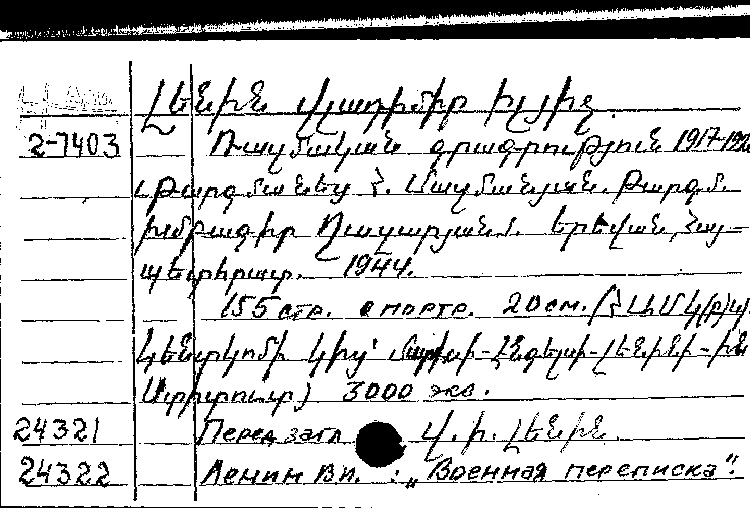 Լենին Վլադիմիր Իլյիչ.
2-7403 Ռազմական գրագրություն 1917-1920
Թարգմանեց Հ. Մազմանյան. Թարգմ.
խմբագիր Ղազարյան Ս. Երեվան, Հայ-
պետհրատ. 1944.
155 стр. с портр. 20 см. (ՀԱՄԿ(բ)Կ
Կենտկոմի կից՝ Մարքսի-Էնգելսի-Լենինի-ին
Ստիտուտ) 3000 экз.
24321 Перед загл Վ. Ի. Լենին.
24322 Ленин ВИ. : „Военная переписка".